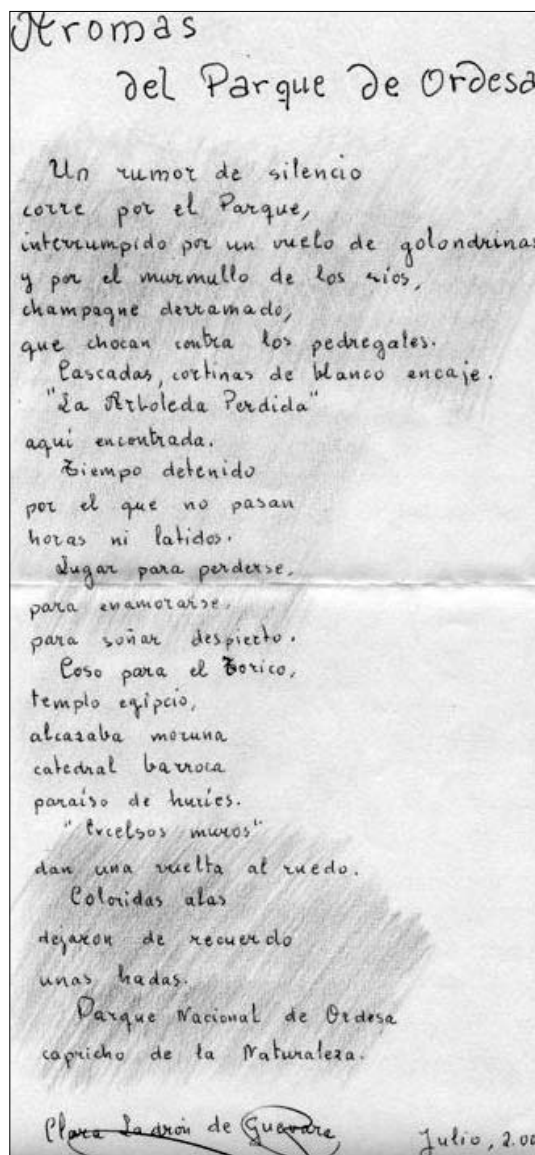 Aromas
del Parque de Ordesa
Un rumor de silencio
corre por el Parque,
interrumpido por un vuelo de golondrinas
y por el murmullo de los ríos,
champagne derramado,
que chocan contra los pedregales.
Cascadas, cortinas de blanco encaje.
"La Arboleda Perdida"
aquí encontrada.
Tiempo detenido
por el que no pasan
horas ni latidos.
Lugar para perderse,
para enamorarse,
para soñar despierto.
Coso para el Torico,
templo egipcio,
alcazaba moruna
catedral barroca
paraíso de huríes.
"Excelsos muros"
dan una vuelta al ruedo.
Coloridas alas
dejaron de recuerdo
unas hadas.
Parque Nacional de Ordesa
capricho de la Naturaleza.
Clara Ladrón de Guevara
Julio, 2.00